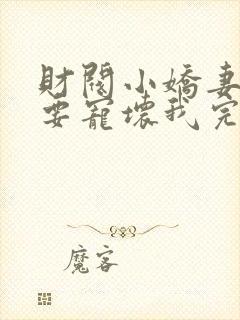 財閥小嬌妻
要寵壞我完
魔客